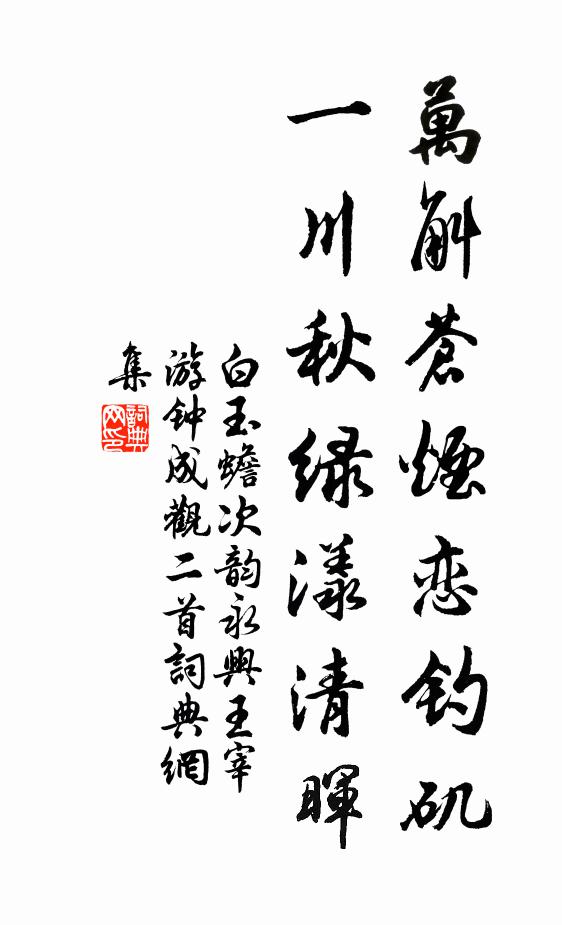 萬斛蒼煙恋钓矶
一川秋绿漾清暉
白玉蟾次韵永興王宰
游钟成觀二首詞典網
集
詞典网印